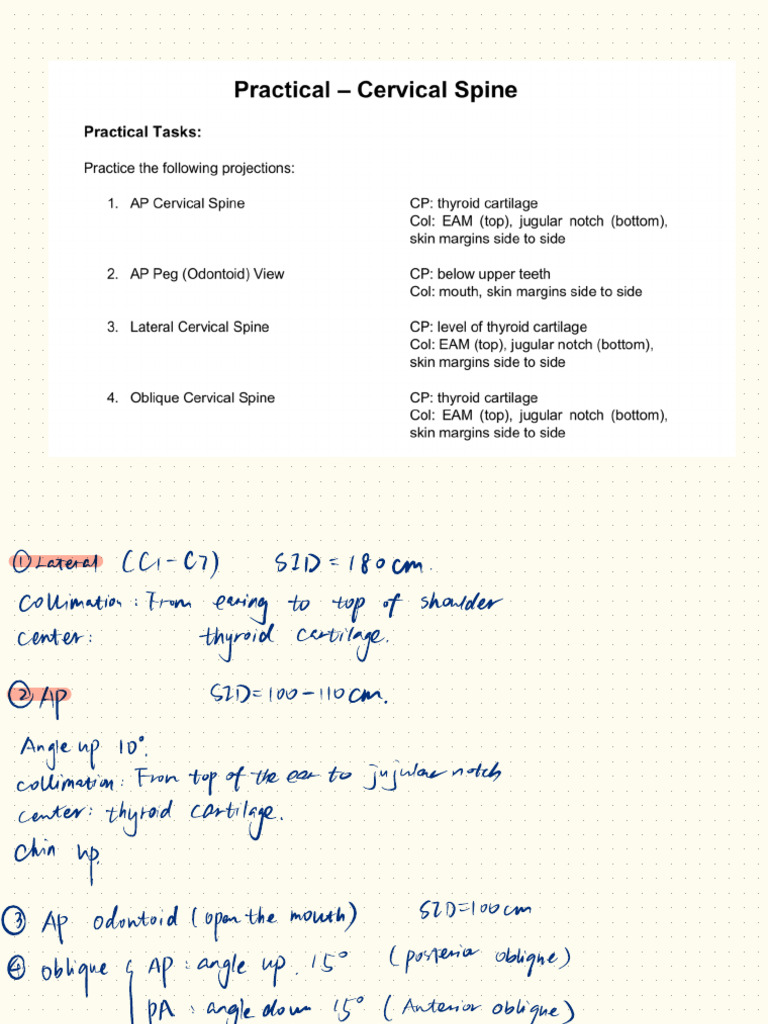 Practical – Cervical Spine
Practical Tasks:
Practice the following projections:
1. AP Cervical Spine CP: thyroid cartilage
Col: EAM (top), jugular notch (bottom),
skin margins side to side
2. AP Peg (Odontoid) View CP: below upper teeth
Col: mouth, skin margins side to side
3. Lateral Cervical Spine CP: level of thyroid cartilage
Col: EAM (top), jugular notch (bottom),
skin margins side to side
4. Oblique Cervical Spine CP: thyroid cartilage
Col: EAM (top), jugular notch (bottom),
skin margins side to side
① Lateral (C1-C7) SID = 180cm.
Collimation: From earing to top of shoulder
center: thyroid cartilage.
② AP SID=100-110cm.
Angle up 10°.
collimation: From top of the ear to jujular notch
center: thyroid cartilage.
Chin up.
③ AP odontoid (open the mouth) SID=100cm
④ oblique { AP: angle up 15° (posterior oblique)
PA: angle down 15° (Anterior oblique)